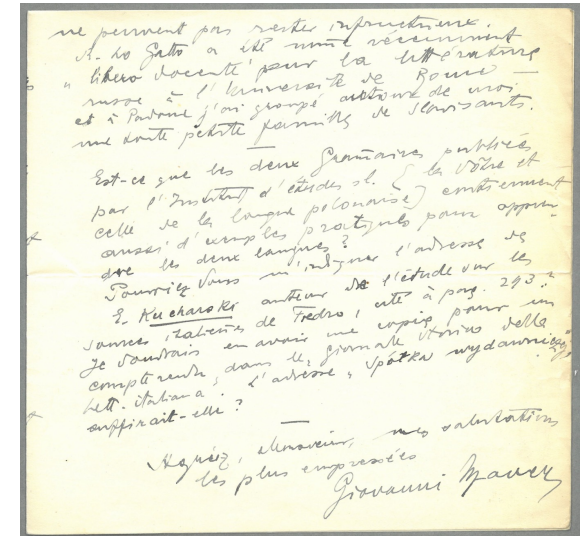 ne peuvent pas rester infructueux.
M. Lo Gatto a été nommé récemment
"libero docente" pour la littérature
russe à l'Université de Rome
et à Padoue j'ai groupé autour de moi
une toute petite famille de slavisants.
Est-ce que les deux Grammaires publiées
par l'Institut d'études sl. (la Vôtre et
celle de la langue polonaise) contiennent
aussi d'exemples pratiques pour appren-
dre les deux langues?
Pourriez Vous m'indiquer l'adresse de
E. Kucharski auteur de l'étude sur les
sources italiennes de Fredro, cité à pag. 293?
Je voudrais en avoir une copie pour un
compte rendu, dans le "Giornale storico della
lett. italiana". L'adresse "Spółka wydawnicza"
suffirait-elle?
Agréez, Monsieur, mes salutations
les plus empressées
Giovanni Maver